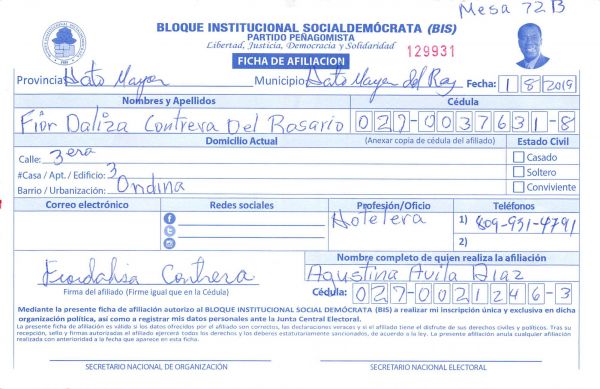 Mesa 72B
BLOQUE INSTITUCIONAL SOCIALDEMÓCRATA (BIS)
PARTIDO PEÑAGOMISTA
Libertad, Justicia, Democracia y Solidaridad
129931
FICHA DE AFILIACION
Provincia: Hato Mayor Municipio: Hato Mayor del Rey Fecha: 1 8 2019
Nombres y Apellidos Cédula
Fior Daliza Contrera Del Rosario 027-0037631-8
Domicilio Actual (Anexar copia de cédula del afiliado) Estado Civil
Calle: 3era Casado
#Casa / Apt. / Edificio: 3 Soltero
Barrio / Urbanización: Ondina Conviviente
Correo electrónico Redes sociales Profesión/Oficio Teléfonos
Hotelera 1) 809-931-4791
2)
Nombre completo de quien realiza la afiliación
Fiordaliza Contrera Agustina Avila Diaz
Firma del afiliado (Firme igual que en la Cédula) Cédula: 027-0021246-3
Mediante la presente ficha de afiliación autorizo al BLOQUE INSTITUCIONAL SOCIAL DEMÓCRATA (BIS) a realizar mi inscripción única y exclusiva en dicha
organización política, así como a registrar mis datos personales ante la Junta Central Electoral.
La presente ficha de afiliación es válida si los datos ofrecidos por el afiliado son correctos, las declaraciones veraces y si el afiliado tiene el disfrute de sus derechos civiles y políticos. Tras su
recepción, sello y firmas autorizadas el afiliado ejercerá todos los derechos y los deberes estatutariamente sancionados, de acuerdo a la ley. La presente afiliación anula cualquier afiliación
realizada con anterioridad a la fecha que aparece en esta ficha.
SECRETARIO NACIONAL DE ORGANIZACIÓN SECRETARIO NACIONAL ELECTORAL